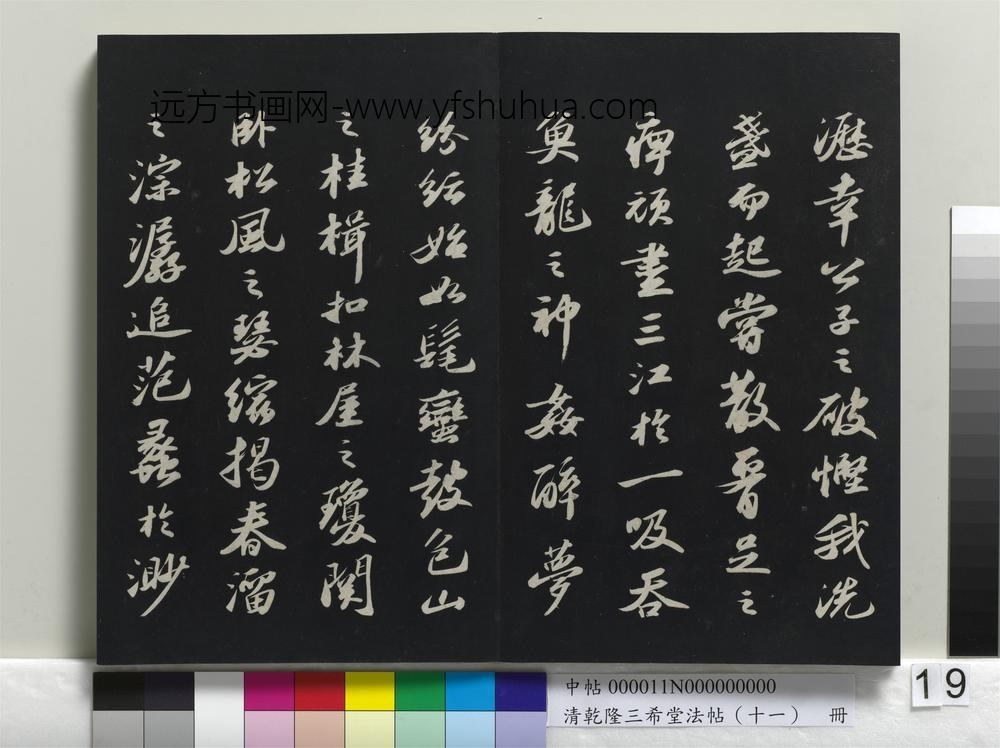 远方书画网-www.yfshuhua.com
瀝幸公子之破慳我洗
盞而起嘗散腰足之
痹頑盡三江於一吸吞
魚龍之神姦醉夢
紛紜始如髦蠻鼓包山
之桂楫扣林屋之瓊關
臥松風之瑟縮揭春溜
之淙潺追范蠡於渺
中帖 000011N000000000
清乾隆三希堂法帖（十一） 冊
19